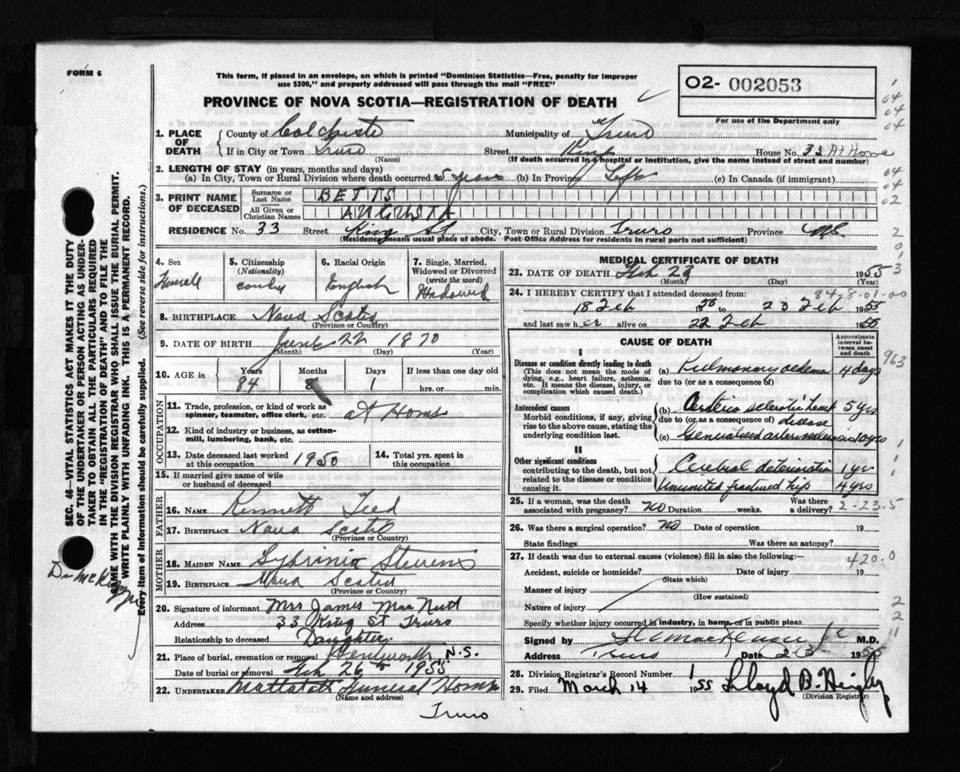 FORM 6
This form, if placed in an envelope, on which is printed "Dominion Statistics—Free, penalty for improper
use $300," and properly addressed will pass through the mail "FREE"
PROVINCE OF NOVA SCOTIA—REGISTRATION OF DEATH
O2- 002053
For use of the Department only
SEC. 46—VITAL STATISTICS ACT MAKES IT THE DUTY
OF THE UNDERTAKER OR PERSON ACTING AS UNDER-
TAKER TO OBTAIN ALL THE PARTICULARS REQUIRED
IN THE "REGISTRATION OF DEATH" AND TO FILE THE
SAME WITH THE DIVISION REGISTRAR WHO SHALL ISSUE THE BURIAL PERMIT.
WRITE PLAINLY WITH UNFADING INK. THIS IS A PERMANENT RECORD.
Every item of information should be carefully supplied. (See reverse side for instructions.)
1. PLACE OF DEATH
County of Colchester Municipality of Truro
If in City or Town Truro Street King House No. 33 At Home
(Name) (If death occurred in a hospital or institution, give the name instead of street and number)
2. LENGTH OF STAY (in years, months and days)
(a) In City, Town or Rural Division where death occurred 5 years (b) In Province Life (c) In Canada (if immigrant)
3. PRINT NAME OF DECEASED
Surname or Last Name BETTS
All Given or Christian Names AUGUSTA
RESIDENCE No. 33 Street King St. City, Town or Rural Division Truro Province N.S.
(Residence means usual place of abode. Post Office Address for residents in rural parts not sufficient)
4. Sex
5. Citizenship (Nationality)
6. Racial Origin English
7. Single, Married, Widowed or Divorced (write the word)
8. BIRTHPLACE Nova Scotia
(Province or Country)
9. DATE OF BIRTH June 22 1870
(Month) (Day) (Year)
10. AGE in Years Months Days If less than one day old
84 8 1 hrs. or min.
OCCUPATION
11. Trade, profession, or kind of work as
spinner, teamster, office clerk, etc. at Home
12. Kind of industry or business, as cotton-
mill, lumbering, bank, etc.
13. Date deceased last worked at this occupation 1950
14. Total yrs. spent in this occupation
15. If married give name of wife
or husband of deceased
FATHER
16. NAME Kennett Teed
17. BIRTHPLACE Nova Scotia
(Province or Country)
MOTHER
18. MAIDEN NAME Stevens
19. BIRTHPLACE Nova Scotia
(Province or Country)
20. Signature of informant Mrs James Mac Nutt
Address 33 King St Truro
Relationship to deceased Daughter
21. Place of burial, cremation or removal Wentworth N.S.
Date of burial or removal Feb 26 1955
22. UNDERTAKER Mattatall Funeral Home
(Name and address)
Truro
MEDICAL CERTIFICATE OF DEATH
23. DATE OF DEATH Feb 23 1955
(Month) (Day) (Year)
24. I HEREBY CERTIFY that I attended deceased from:
84-8-01-00
18 Feb 23 Feb 1955
and last saw her alive on 22 Feb 1955
CAUSE OF DEATH
Approximate interval between onset and death
I
Disease or condition directly leading to death
(This does not mean the mode of
dying, e.g., heart failure, asthenia,
etc. It means the disease, injury, or
complication which caused death.)
(a) Pulmonary oedema 4 days
due to (or as a consequence of)
Antecedent causes
Morbid conditions, if any, giving
rise to the above cause, stating the
underlying condition last.
(b) Arterio sclerotic heart disease 5 yrs
due to (or as a consequence of)
(c) Generalised arteriosclerosis 10 yrs
II
Other significant conditions
contributing to the death, but not
related to the disease or condition
causing it.
Cerebral deterioration 1 yr
Ununited fractured hip 4 yrs
963
25. If a woman, was the death
associated with pregnancy? No Duration weeks. Was there a delivery?
2-23-5
26. Was there a surgical operation? No Date of operation 19
State findings Was there an autopsy?
27. If death was due to external causes (violence) fill in also the following:—
420.0
Accident, suicide or homicide? Date of injury 19
(State which)
Manner of injury
(How sustained)
Nature of injury
Specify whether injury occurred in industry, in home, or in public place.
Signed by M.D.
Address Truro Date 1955
28. Division Registrar's Record Number
29. Filed March 14 1955 Lloyd B.
(Division Registrar)